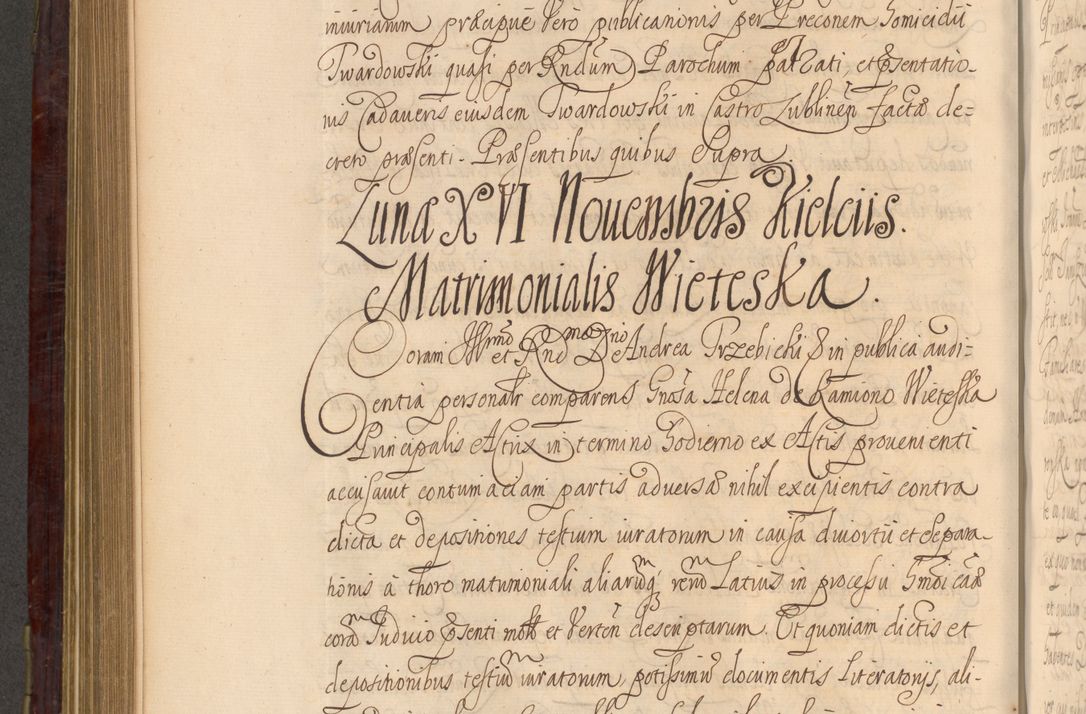 iniuriarum præcipuè Vero publicanonis per Preconem Homicidii
Twardowski quasi per Rndum Parochum patrati, et Psentatio-
nis Cadaueris eiusdem Twardowski in Castro Lublinen factæ de=
creto præsenti. Præsentibus quibus Supra.
Lunæ XVI Nouembris Kielciis.
Matrimonialis Wieteska.
Coram Illmo et Rndmo Dno Andrea Trzebicki &c in publica audi=
entia personalr comparens Gnosa Helena de Kamiono Wieteska
Principalis Actrix in termino Hodierno ex Actis prouenienti
accusauit contumaciam partis aduersæ nihil excipientis contra
dicta et depositiones testium iuratorum in causa diuortii et Separa-
tionis à thoro matrimoniali aliarumq rerum Latius in processu Hmoi cæ
coram Iudicio Psenti mottæ et Verten descriptarum. Et quoniam dictis et
depositionibus testium iuratorum potissimum documentis Literatorijs, ali-